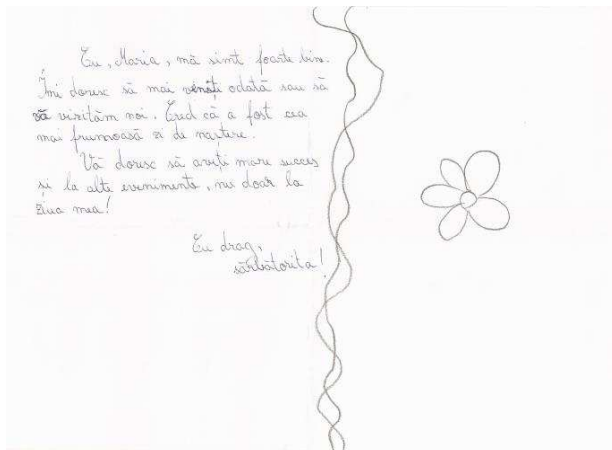 Eu, Maria, mă simt foarte bine.
Îmi doresc să mai veniți odată sau să
vă vizităm noi. Cred că a fost cea
mai frumoasă zi de naștere.
Vă doresc să aveți mare succes
și la alte evenimente, nu doar la
ziua mea!
Cu drag,
sărbătorita!